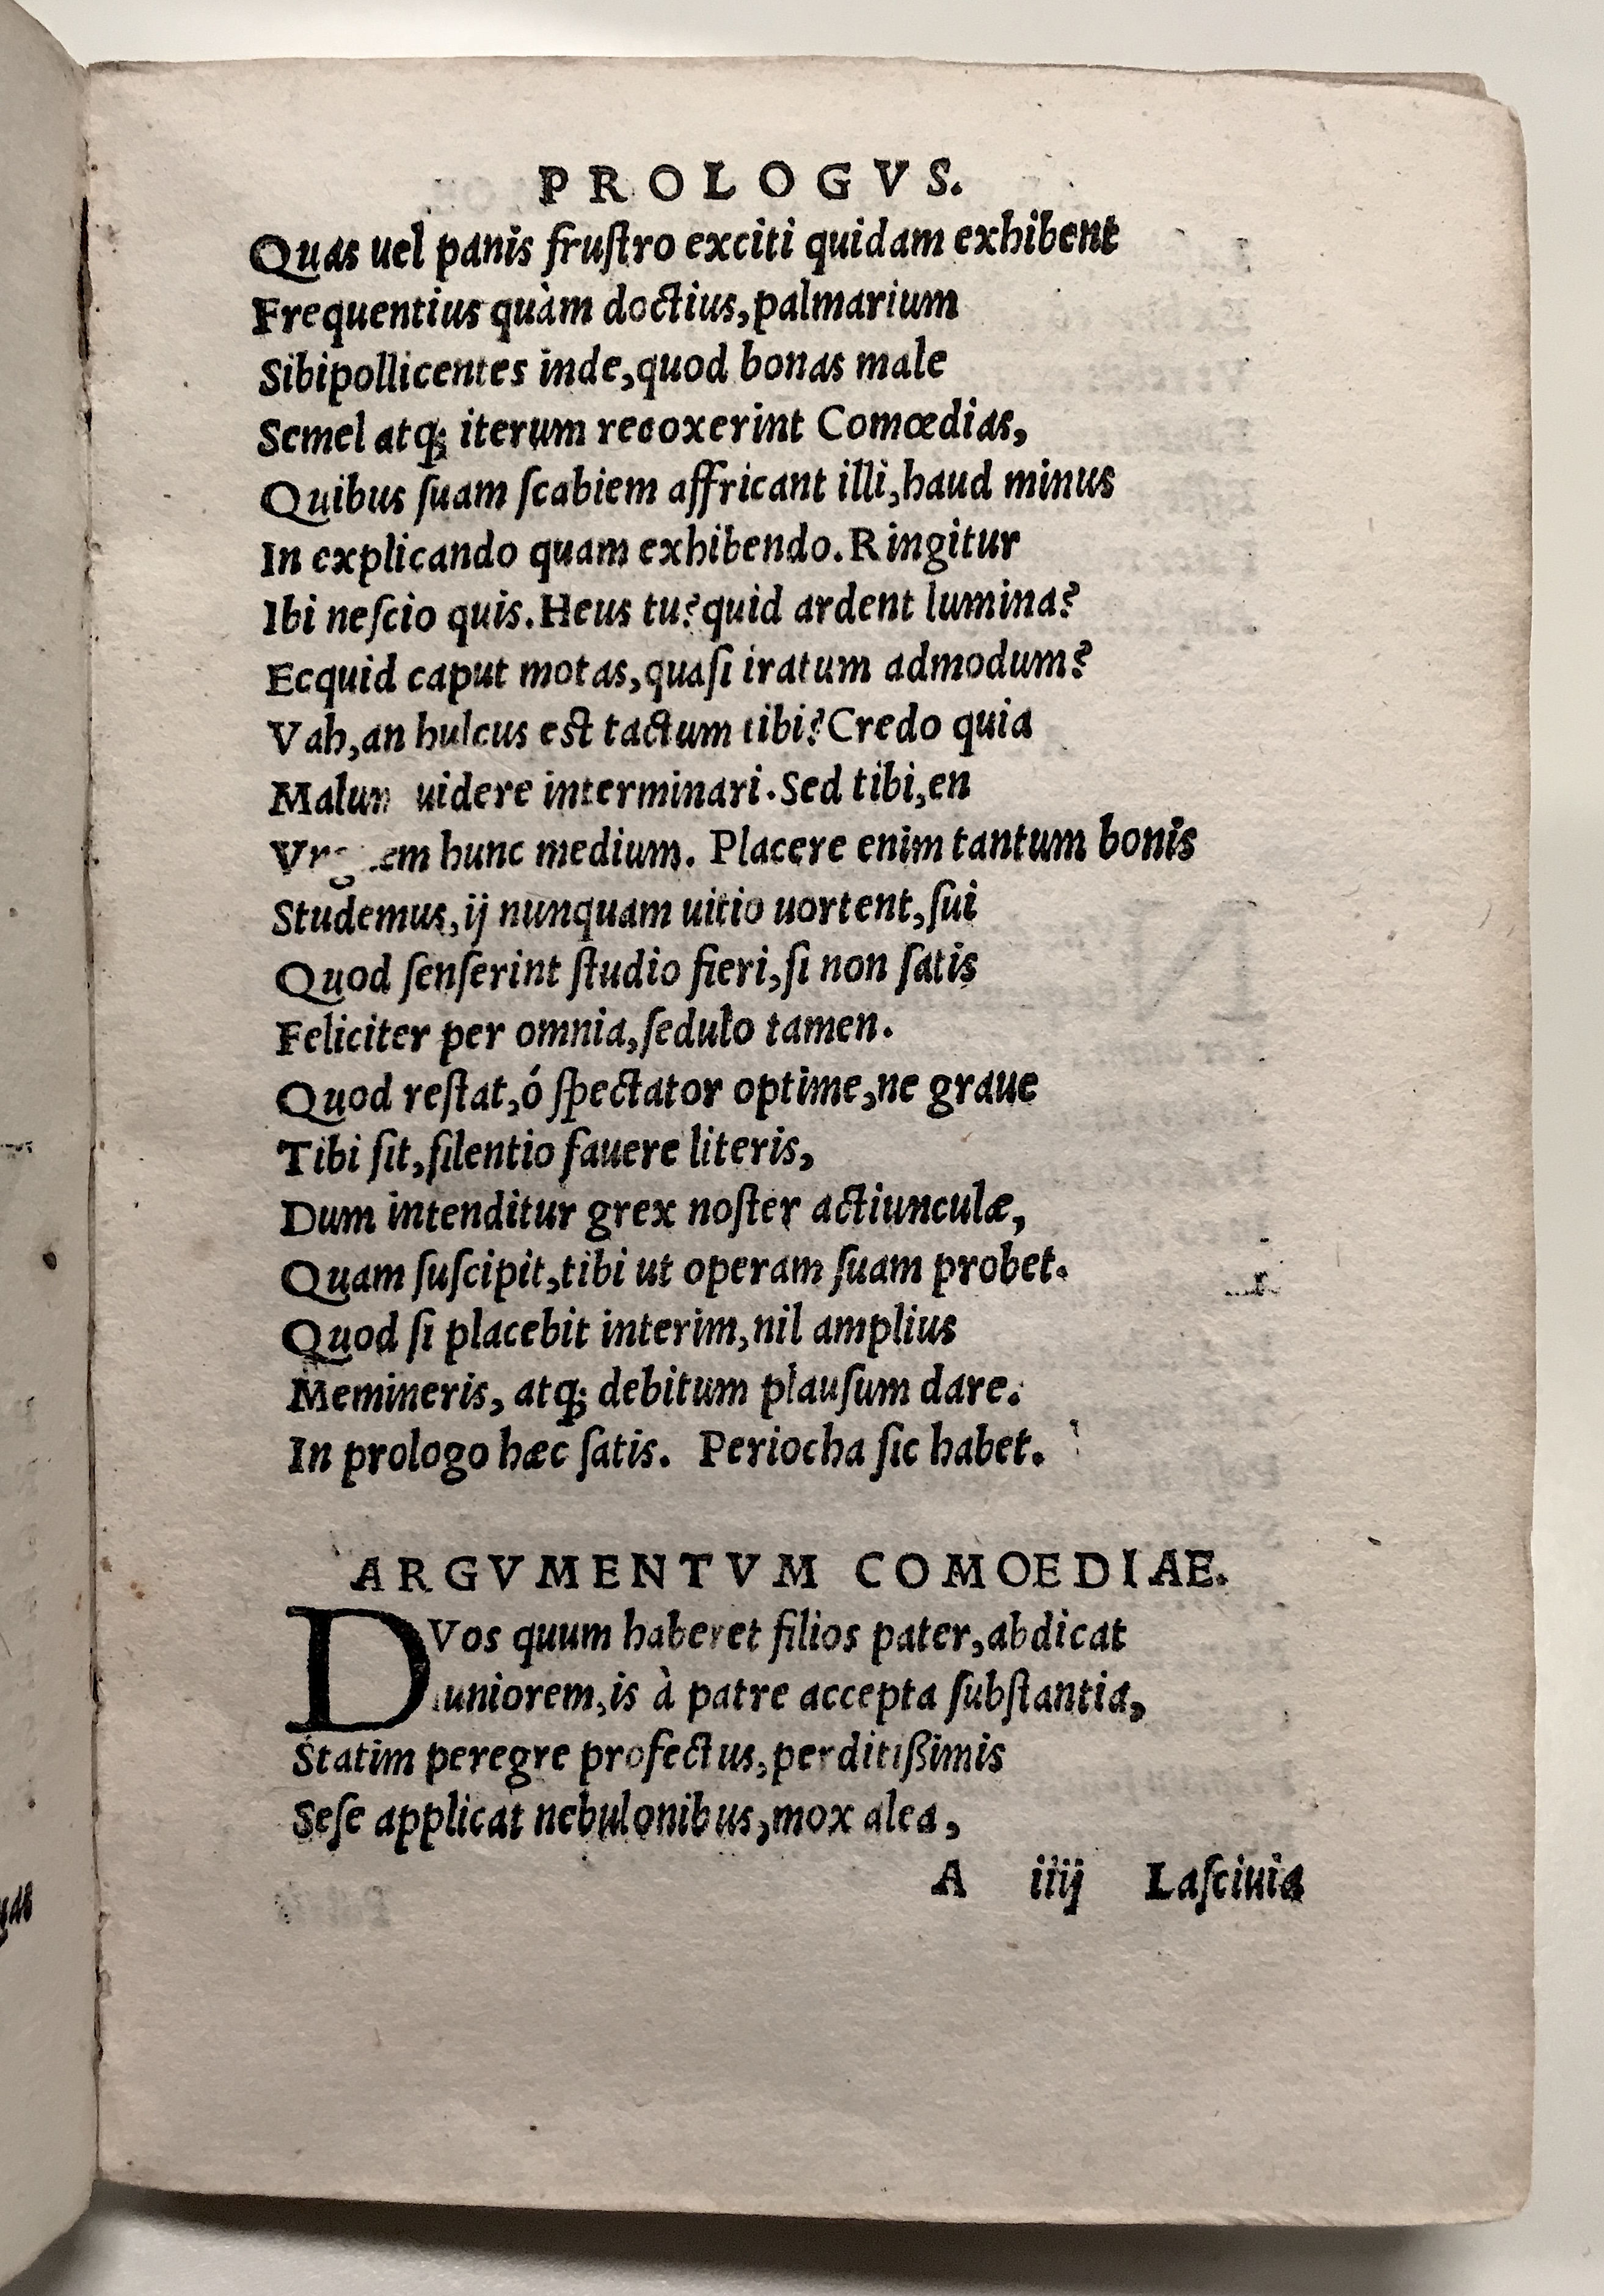 PROLOGVS.
Quas uel panis fruſtro exciti quidam exhibent
Frequentius quàm doctius,palmarium
Sibipollicentes inde,quod bonas male
Semel atq; iterum recoxerint Comœdias,
Quibus ſuam ſcabiem affricant illi,haud minus
In explicando quam exhibendo.Ringitur
Ibi neſcio quis.Heus tu?quid ardent lumina?
Ecquid caput motas,quaſi iratum admodum?
Vah,an hulcus est tactum tibi?Credo quia
uidere interminari.Sed tibi,en
hunc medium. Placere enim tantum bonis
Studemus,ij nunquam uitio uortent,ſui
Quod ſenſerint ſtudio fieri,ſi non ſatis
Feliciter per omnia,ſedulo tamen.
Quod reſtat,ó ſpectator optime,ne graue
Tibi ſit,ſilentio fauere literis,
Dum intenditur grex noſter actiunculæ,
Quam ſuſcipit,tibi ut operam ſuam probet.
Quod ſi placebit interim,nil amplius
Memineris, atq; debitum plauſum dare.
In prologo hæc ſatis. Periocha ſic habet.
ARGVMENTVM COMOEDIAE.
DVos quum haberet filios pater,abdicat
Iuniorem,is à patre accepta ſubſtantia,
Statim peregre profectus,perditißimis
Seſe applicat nebulonibus,mox alea,
A iiij Laſciuia